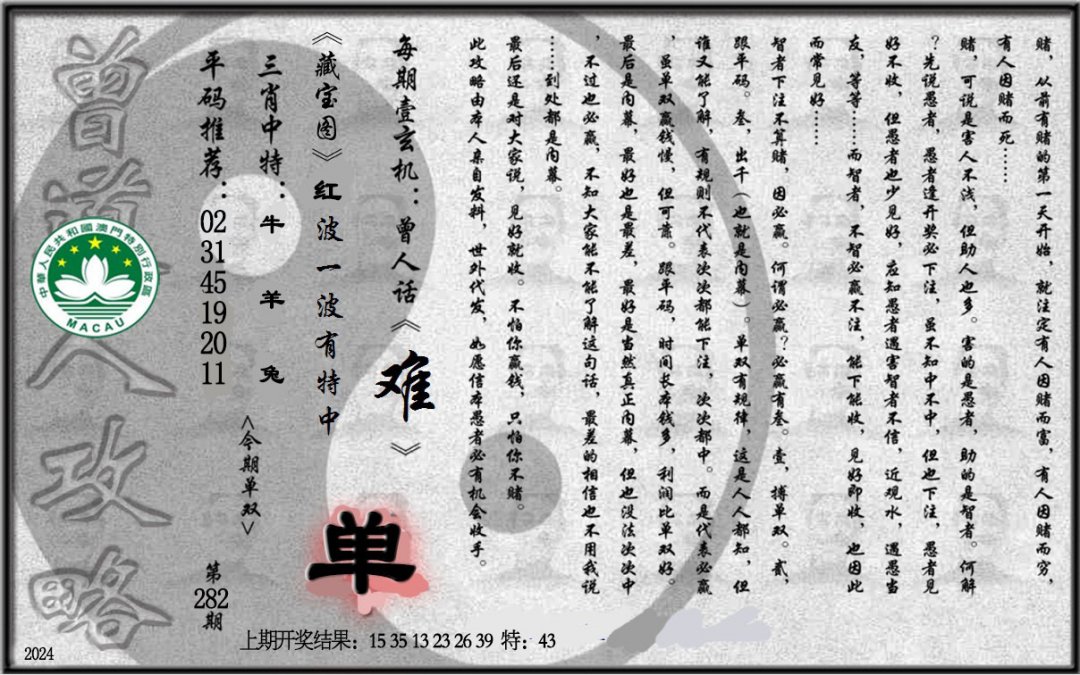 赌，从前有赌的第一天开始，就注定有人因赌而富，有人因赌而穷，
有人因赌而死……
赌，可说是害人不浅，但助人也多。害的是愚者，助的是智者。何解
？先说愚者，愚者逢开奖必下注，虽不知中不中，但也下注，愚者见
好不收，但愚者也少见好，应知愚者遇害智者不信，近观水，遇愚当
友，等等……而智者，不智必赢不注，能下能收，见好即收，也因此
而常见好……
智者下注不算赌，因必赢。何谓必赢？必赢有叁。壹，搏单双。贰，
跟平码。叁，出千（也就是内幕）。单双有规律，这是人人都知，但
谁又能了解，有规则不代表次次都能下注，次次都中。而是代表必赢
，虽单双赢钱慢，但可靠。跟平码，时间长本钱多，利润比单双好。
最后是内幕，最好也是最差，最好是当然真正内幕，但也没法次次中
，不过也必赢，不知大家能不能了解这句话，最差的相信也不用我说
……到处都是内幕。
最后还是对大家说，见好就收。不怕你赢钱，只怕你不赌。
此攻略由本人亲自发料，世外代发，如愿信本愚者必有机会收手。
每期壹玄机：曾人话《难》
《藏宝图》红波一波有特中
单
三肖中特：牛 羊 兔
<今期单双>
平码推荐：02 31 45 19 20 11
第282期
曾道人攻略
中華人民共和國澳門特別行政區
MACAU
上期开奖结果：15 35 13 23 26 39 特：43
2024